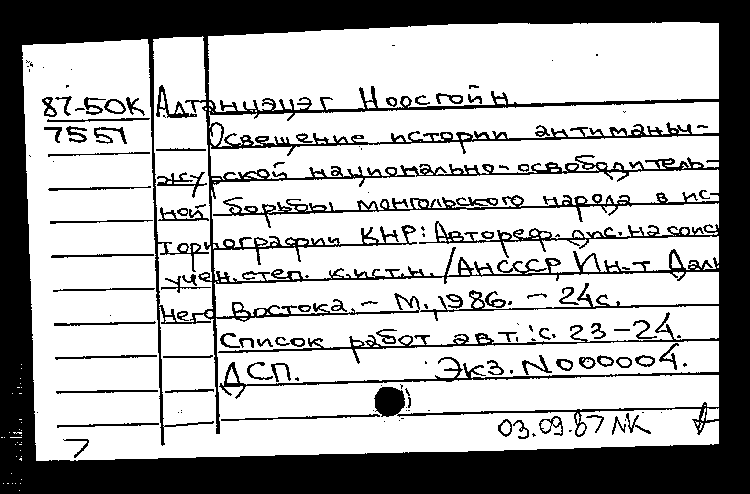 87-50К Алтанцэцэг Ноосгойн.
7551 Освещение истории антиманьч-
журской национально-освободитель-
ной борьбы монгольского народа в ис-
ториографии КНР: Автореф. дис. на соиск
учен. степ. к.ист.н. /АНСССР, Ин-т Даль
него Востока. - М., 1986. - 24с.
Список работ авт.: с. 23-24.
ДСП. Экз. N000004.
03.09.87 NK